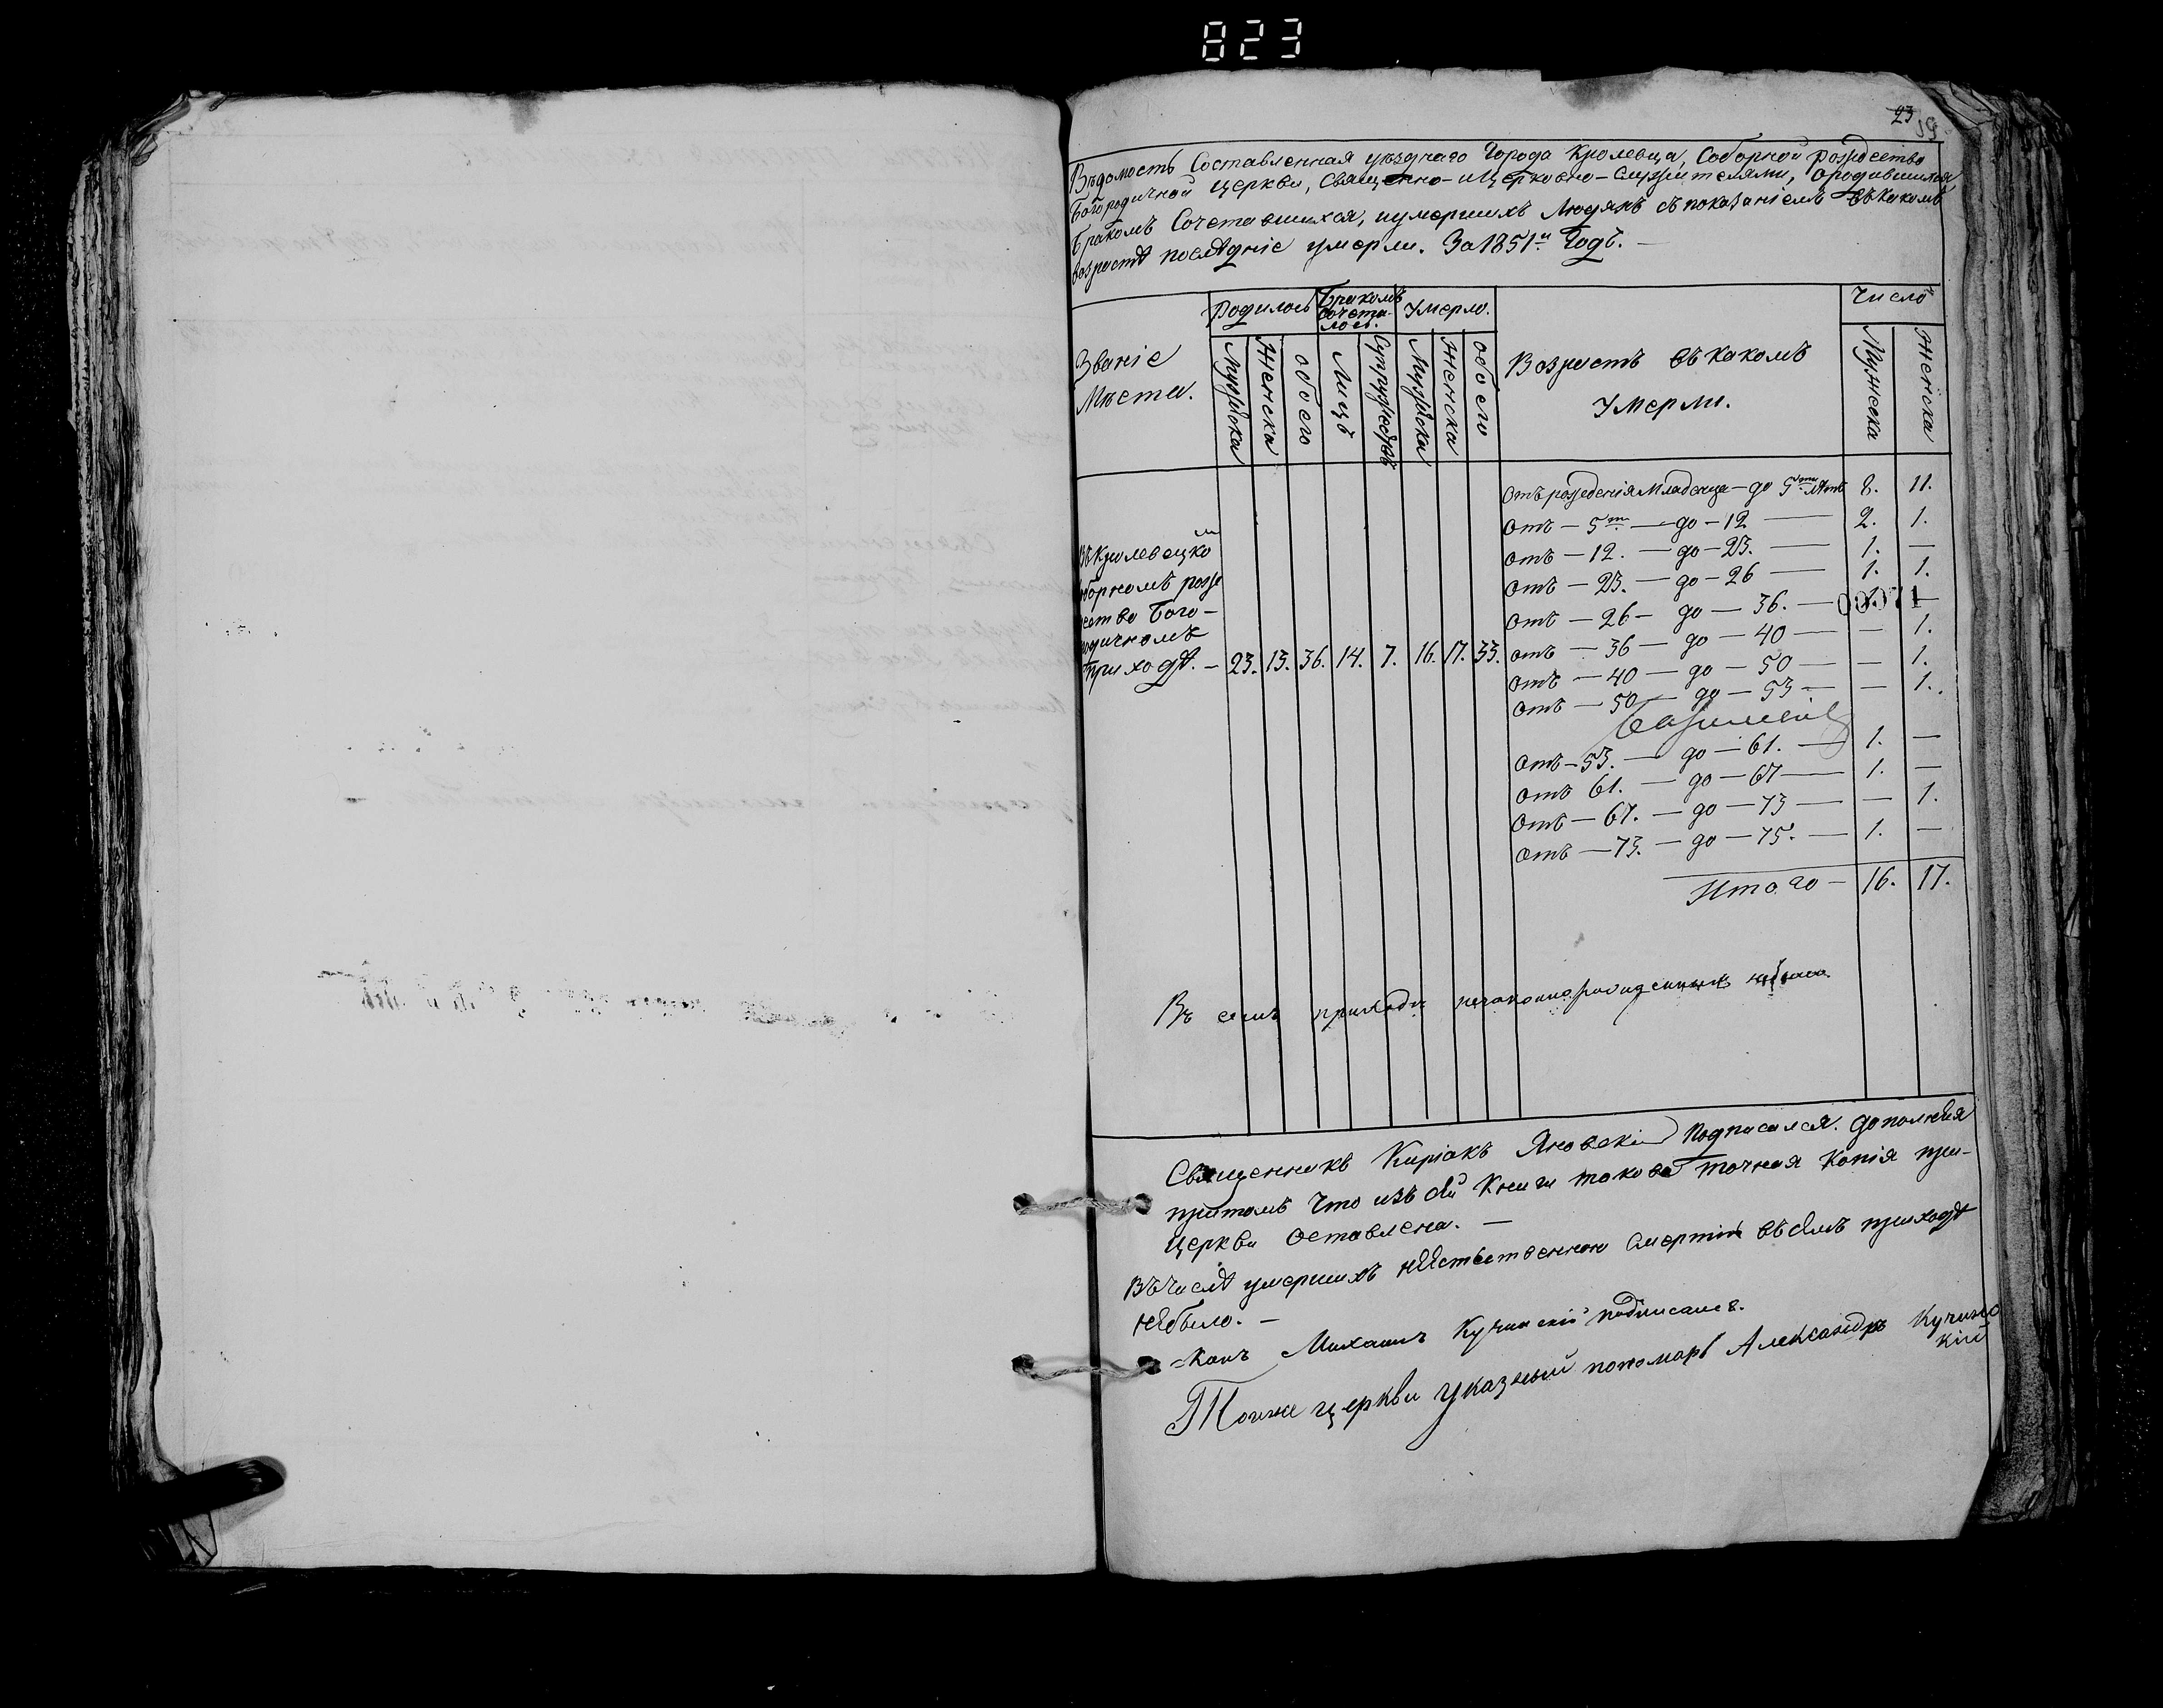 823
23
19
Вѣдомость Составленная уѣзднаго Города Кролевца, Соборной Рождество
Богородичной Церкви, Священно-иЦерковно-Служителями, ородившихся
Бракомъ Сочетавшихся, иумершихъ Людяхъ съпоказаніемъ въкакомъ
возрастѣ послѣдніе умерли. За 1851й Годъ. —
Званіе Мѣста.
Родилось
Бракомъ сочета-лось.
Умерло.
Возрастъ въ какомъ умерли.
Число
Мужеска
Женска
обоего
Лицъ
Супружествъ
Мужеска
Женска
обоего
Мужеска
Женска
Отъ рожденія Младенца — до 5ти лѣтъ 8. 11.
Отъ — 5ти — до — 12 — 2. 1.
Отъ — 12. — до — 23. — 1. —
Отъ — 23. — до — 26 — 1. 1.
Отъ — 26 — до — 36. — 1. —
00071
Отъ — 36 — до — 40 — — 1.
Отъ — 40 — до — 50 — — 1.
Отъ — 50 — до — 53 — — 1.
Отъ — 53. — до — 61. — 1. —
Отъ 61. — до — 67 — 1. —
Отъ — 67. — до — 73 — — 1.
Отъ — 73. — до — 75. — 1. —
Итого — 16. 17.
ВъКролевецком
борномъ рожде
ство Бого-
родичномъ
приходѣ. — 23. 13. 36. 14. 7. 16. 17. 33.
Въ семъ приходѣ незаконнорожденныхъ небыло.
Священникъ Киріакъ Яновскій Подписался. дополняя
притомъ Что изъ сей Книги такова точная Копія при-
Церкви Оставлена. —
Въчислѣ умершихъ неестественною Смертію въсемъ приходѣ
небыло. —
Михаилъ Кучинскій подписалъ.
Тойже церкви Указный пономарь Александръ Кучинс
кій